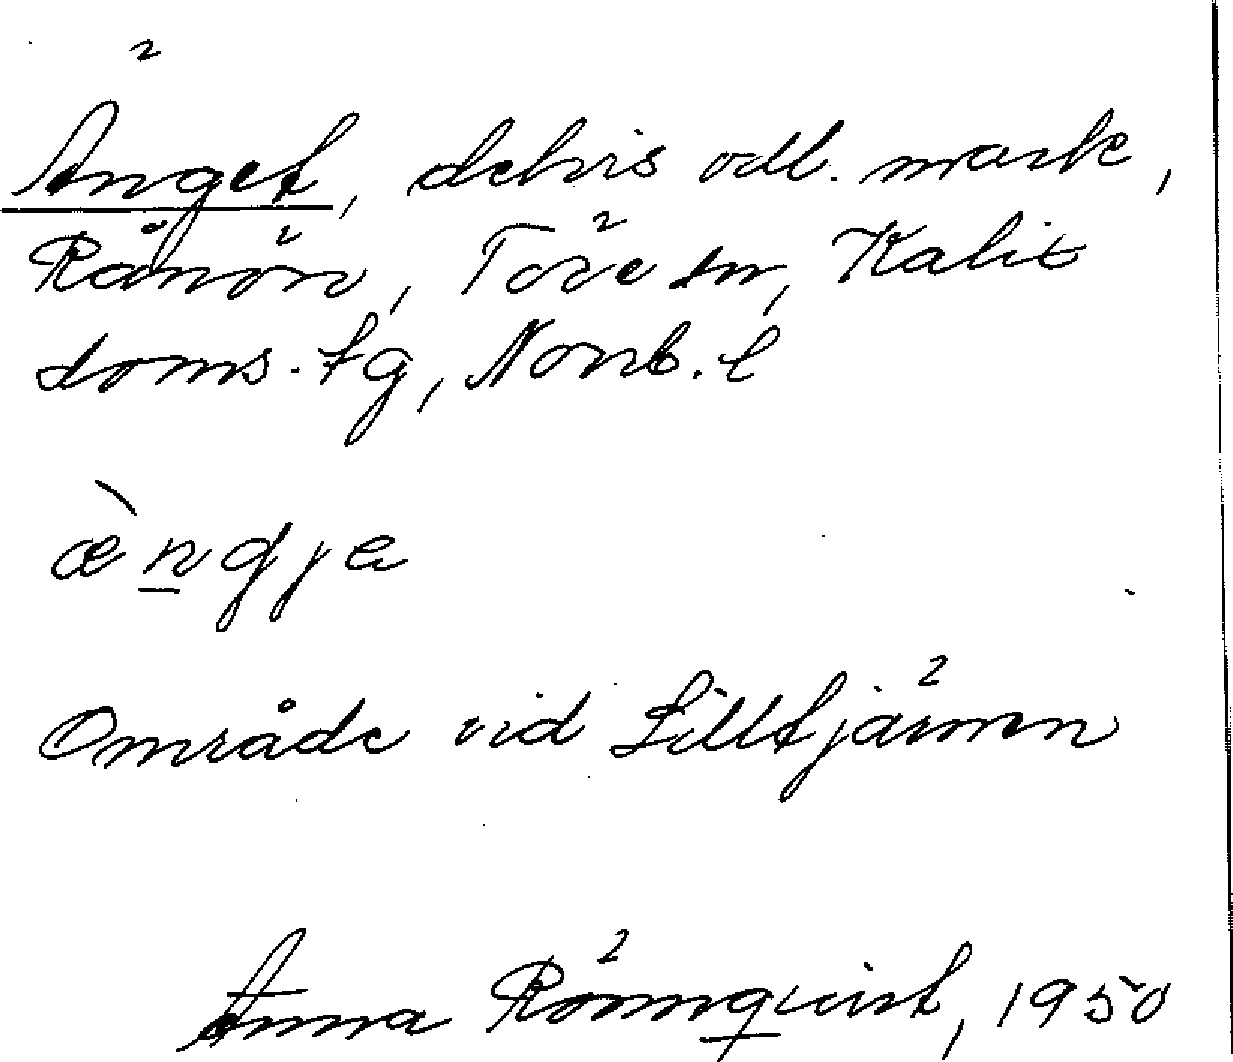 Änget, delvis odl. mark,
Rånön, Töre sn, Kalix
doms. tg, Norrb. l
æ̀ngja
Område vid Lilltjärnen
Anna Rönnqvist, 1950